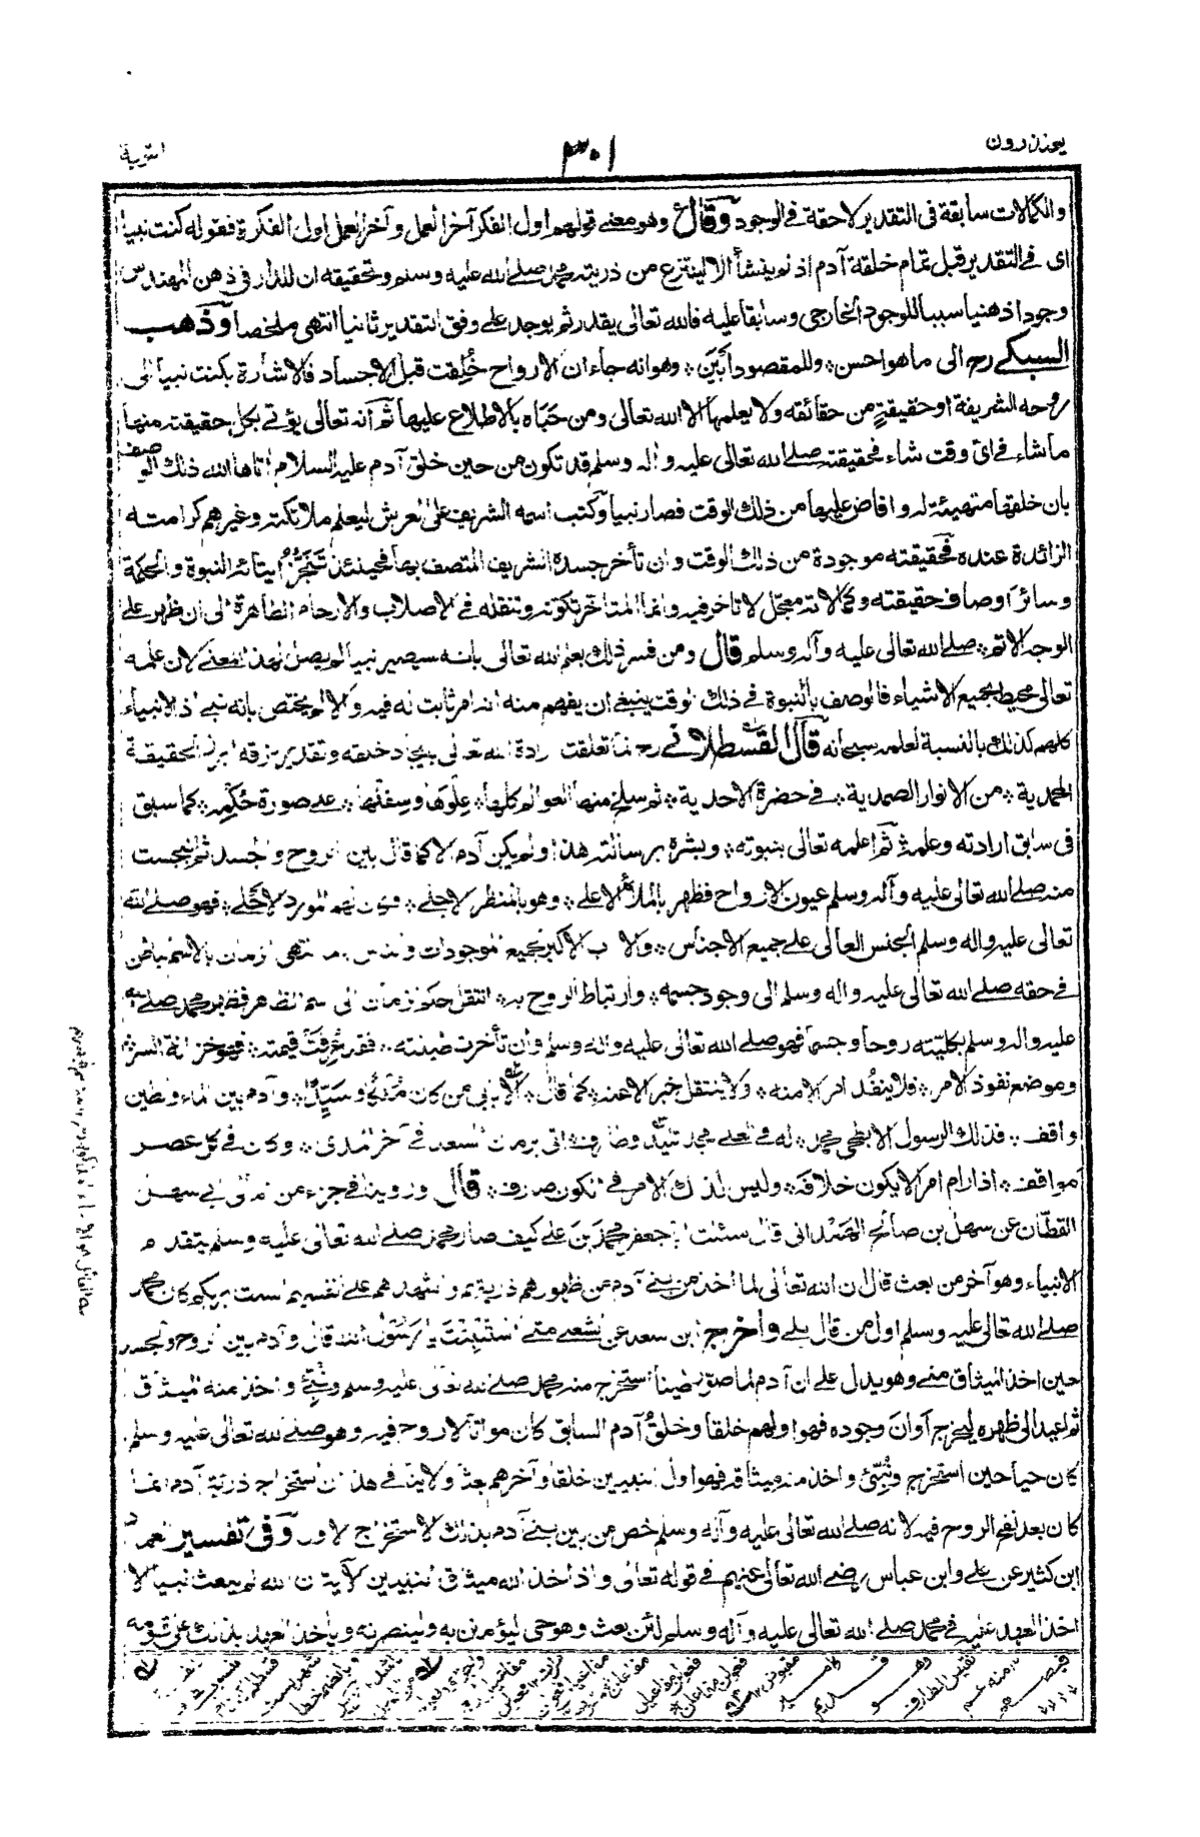 يعتذرون
٣٠١
التوبة
والكمالات سابقة فى التقدير لاحقة فى الوجود وقال وهو معنى قولهم اول الفكر آخر العمل وآخر العمل اول الفكرة فقوله كنت نبيا
اى فى التقدير قبل تمام خلقة آدم اذ لم ينشأ الا لينتزع من ذريته محمد صلى الله عليه وسلم وتحقيقه ان للدار فى ذهن المهندس
وجودا ذهنيا سببا للوجود الخارجى وسابقا عليه فالله تعالى يقدر ثم يوجد على وفق التقدير ثانيا انتهى ملخصا وذهب
السبكى رح الى ما هو احسن وللمقصود ابين وهو انه جاء ان الارواح خلقت قبل الاجساد فالاشارة بكنت نبيا الى
روحه الشريفة او حقيقة من حقائقه ولا يعلمها الا الله تعالى ومن حباه بالاطلاع عليها ثم انه تعالى يؤتى بكل حقيقته منها
ما شاء فى اى وقت شاء فحقيقته صلى الله تعالى عليه واله وسلم قد تكون من حين خلق آدم عليه السلام اتاها الله ذلك الوصف
بان خلقها متهيئة له وافاض عليها من ذلك الوقت فصار نبيا وكتب اسمه الشريف على العرش ليعلم ملائكته وغيرهم كرامته
الزائدة عنده فحقيقته موجودة من ذلك الوقت وان تأخر جسده الشريف المتصف بها فحينئذ تَنَجَّزَ ايتائه النبوة والحكمة
وسائر اوصاف حقيقته وكمالاته معجل لا تاخر فيه وانما المتاخر تكونه وتنقله فى الاصلاب والارحام الطاهرة الى ان ظهر على
الوجه الاتم صلى الله تعالى عليه وآله وسلم قال ومن فسر ذلك بعلم الله تعالى بانه سيصير نبيا لم يصل لهذا المعنى لان علمه
تعالى محيط بجميع الاشياء فالوصف بالنبوة فى ذلك الوقت ينبغى ان يفهم منه انه امر ثابت له فيه والا لم يختص بانه نبى اذ الانبياء
كلهم كذلك بالنسبة لعلمه سبحانه قال القسطلانى رح لما تعلقت ارادة الله تعالى بايجاد خلقه وتقدير رزقه ابرز الحقيقة
المحمدية من الانوار الصمدية فى حضرة الاحدية ثم سلخ منها العوالم كلها علوها وسفلها على صورة حكمه كما سبق
فى سابق ارادته وعلمه ثم اعلمه تعالى بنبوته وبشره برسالته هذا ولم يكن آدم الا كما قال بين الروح والجسد ثم انبجست
منه صلى الله تعالى عليه وآله وسلم عيون الارواح فظهر بالملأ الاعلى وهو بالمنظر الاجلى وكان لهم المورد الاحلى فهو صلى الله
تعالى عليه واله وسلم الجنس العالى على جميع الاجناس والاب الاكبر لجميع الموجودات والناس انتهى الزمان بالاسم الباطن
فى حقه صلى الله تعالى عليه واله وسلم الى وجود جسمه وارتباط الروح به انتقل حكم الزمان الى اسمه الظاهر فظهر محمد صلى الله
عليه واله وسلم بكليته روحا وجسما فهو صلى الله تعالى عليه واله وسلم وان تأخرت طينته فقد عُرِفَتْ قيمته فهو خزانة السر
وموضع نفوذ الامر فلا ينفُذ امر الا منه ولا ينتقل خبر الا عنه كما قال الا بابى من كان مَلِكًا وسَيِّدًا وآدم بين الماء والطين
واقف فذلك الرسول الابطحى محمد له فى العلى مجد تليد وطارف اتى بزمان السعد فى آخر المدى وكان فى كل عصر
مواقف اذا رام امرا لا يكون خلافه وليس لذلك الامر فى الكون صارف قال وروينا فى جزء من امالى ابى سهل
القطان عن سهل بن صالح الهمدانى قال سئلت ابا جعفر محمد بن على كيف صار محمد صلى الله تعالى عليه وسلم يتقدم
الانبياء وهو آخر من بعث قال ان الله تعالى لما اخذ من بنى آدم من ظهورهم ذريتهم واشهدهم على انفسهم الست بربكم كان محمد
صلى الله تعالى عليه وسلم اول من قال بلى واخرج ابن سعد عن الشعبى متى استُنبِئتَ يا رسول الله قال وآدم بين الروح والجسد
حين اخذ الميثاق منى وهو يدل على ان آدم لما صور طينا استخرج منه محمد صلى الله تعالى عليه وسلم ونبئ واخذ منه الميثاق
ثم اعيد الى ظهره ليخرج آوان وجوده فهو اولهم خلقا وخلق آدم السابق كان مواتا لا روح فيه وهو صلى الله تعالى عليه وسلم
كان حيا حين استخرج ونبئ واخذ منه ميثاقه فهو اول النبيين خلقا وآخرهم بعثا ولا ينافى هذا ان استخراج ذرية آدم انما
كان بعد نفخ الروح فيه لانه صلى الله تعالى عليه وآله وسلم خص من بين بنى آدم بذلك الاستخراج الاول وفى تفسير العماد
ابن كثير عن على وابن عباس رضى الله تعالى عنهم فى قوله تعالى واذ اخذ الله ميثاق النبيين الآية ان الله لم يبعث نبيا الا
اخذ العهد عليه فى محمد صلى الله تعالى عليه وآله وسلم لئن بعث وهو حى ليؤمنن به ولينصرنه وياخذ العهد بذلك على قومه